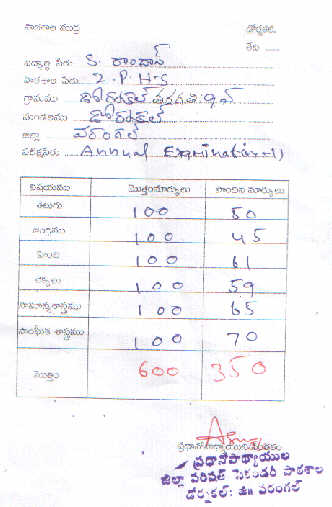 పాఠశాల ముద్ర డోర్నకల్,
తేది .....
విద్యార్థి పేరు S. రాంబాబు
పాఠశాల పేరు Z. P. H. S
గ్రామము డోర్నకల్ తరగతి: 9వ
మండలము డోర్నకల్
జిల్లా వరంగల్
పరీక్షపేరు Annual Examination-II
విషయము మొత్తంమార్కులు పొందిన మార్కులు
తెలుగు 100 50
ఆంగ్లము 100 45
హింది 100 61
లెక్కలు 100 59
సామాన్యశాస్త్రము 100 65
సాంఘిక శాస్త్రము 100 70
మొత్తం 600 350
ప్రధానోపాధ్యాయుల
జిల్లా పరిషత్ సెకండరీ పాఠశాల
డోర్నకల్: జిః వరంగల్